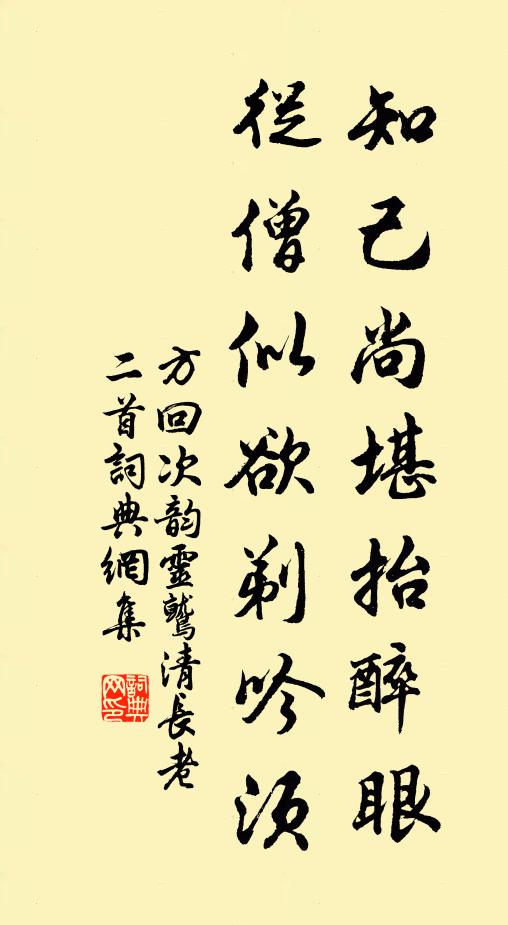 知己尚堪抬醉眼
從僧似欲剃吟須
方回次韵靈鷲清長老
二首詞典網集
詞典网印